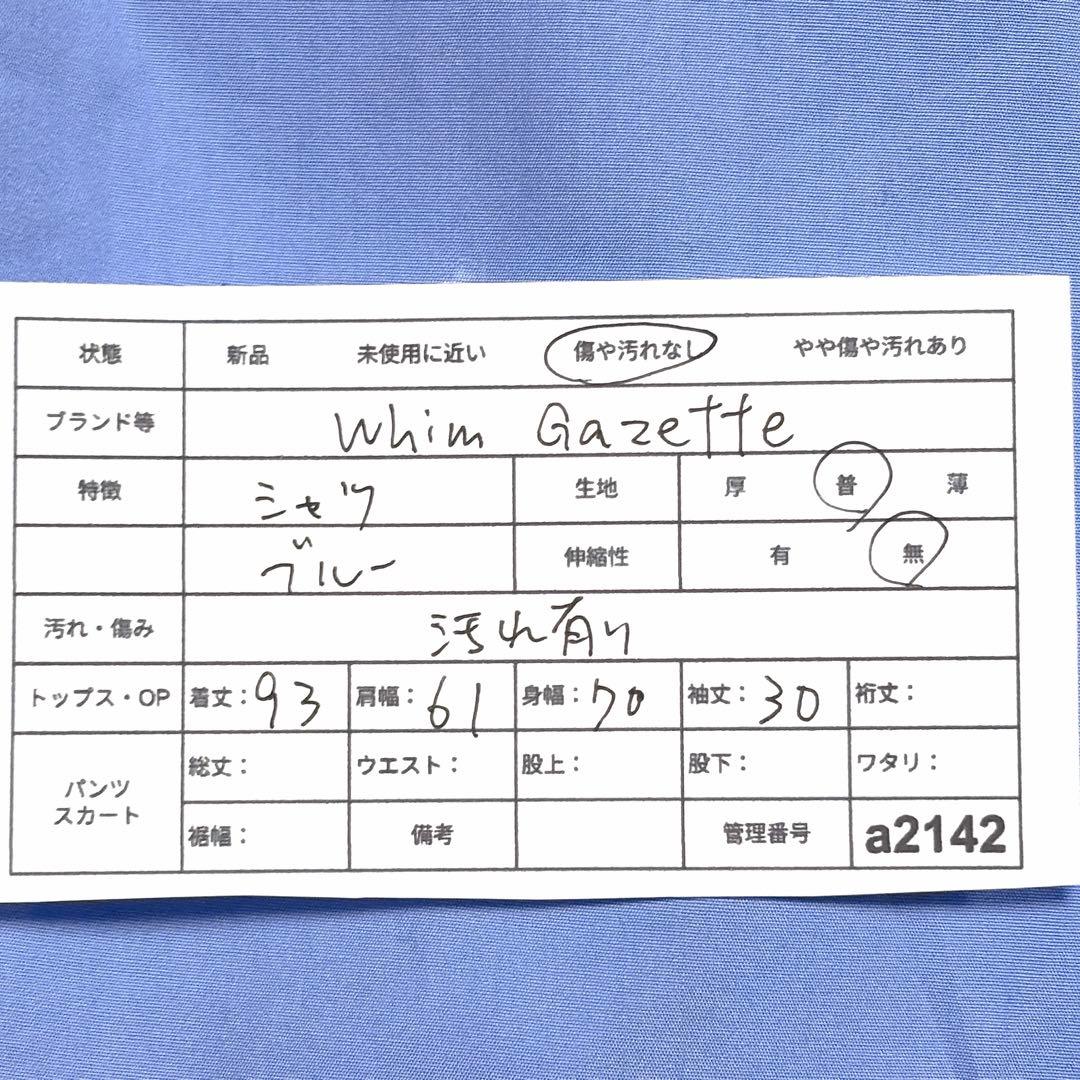 状態 新品 未使用に近い 傷や汚れなし やや傷や汚れあり
ブランド等 Whim Gazette
特徴 シャツ 生地 厚 普 薄
ブルー 伸縮性 有 無
汚れ・傷み 汚れ有り
トップス・OP 着丈：93 肩幅：61 身幅：70 袖丈：30 裄丈：
パンツ スカート 総丈： ウエスト： 股上： 股下： ワタリ：
裾幅： 備考 管理番号 a2142